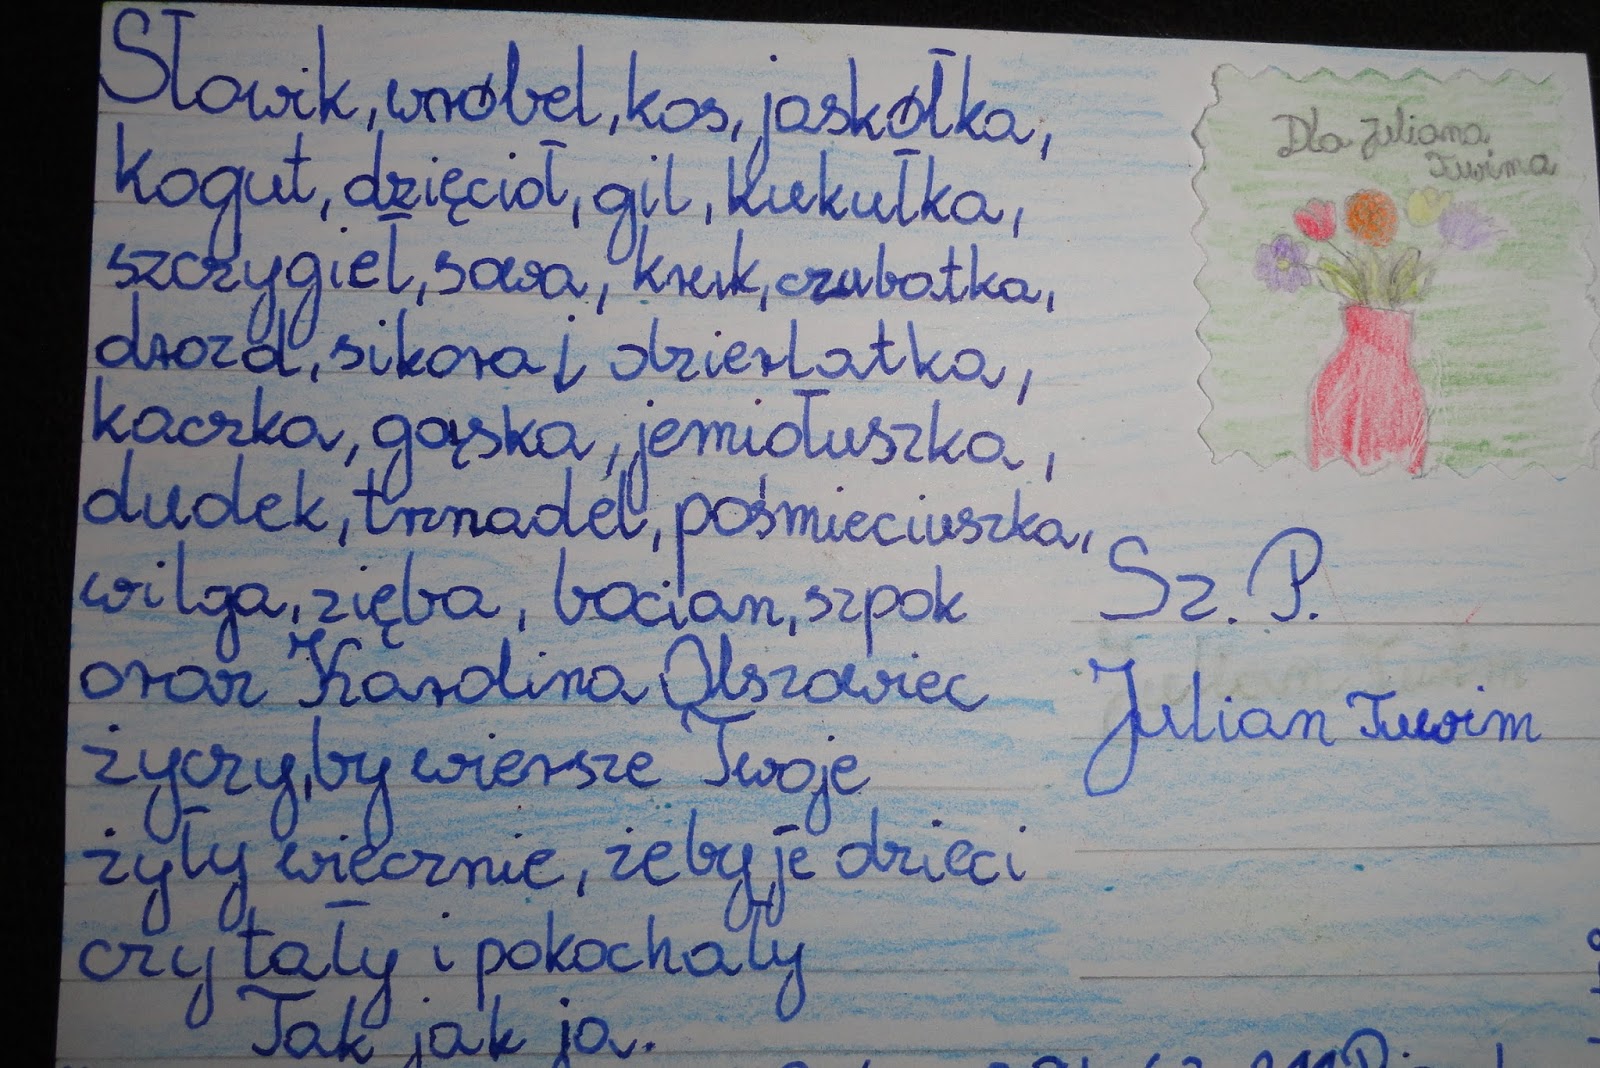 Słowik, wróbel, kos, jaskółka,
kogut, dzięcioł, gil, kukułka,
szczygieł, sowa, kruk, czubatka,
drozd, sikora i dzierlatka,
kaczka, gąska, jemiołuszka,
dudek, trznadel, pośmieciuszka,
wilga, zięba, bocian, szpak
oraz Karolina Olszowiec
życzy, by wiersze Twoje
żyły wiecznie, żeby je dzieci
czytały i pokochały
Tak jak ja.
Dla Juliana
Tuwima
Sz. P.
Julian Tuwim